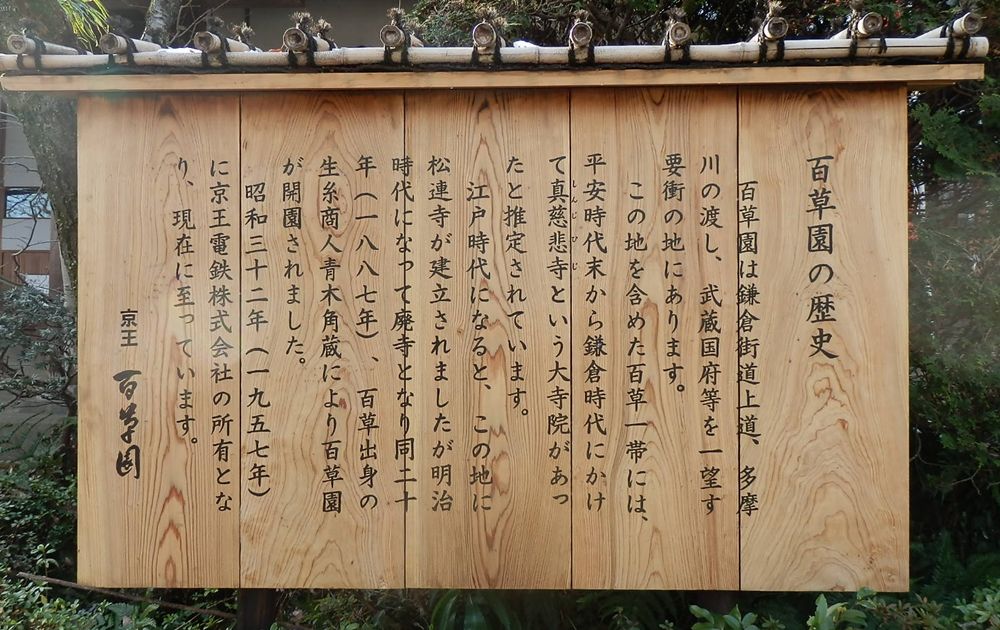 百草園の歴史
百草園は鎌倉街道上道、多摩
川の渡し、武蔵国府等を一望す
要衝の地にあります。
この地を含めた百草一帯には、
平安時代末から鎌倉時代にかけ
て真慈悲寺という大寺院があっ
しんじひじ
たと推定されています。
江戸時代になると、この地に
松連寺が建立されましたが明治
時代になって廃寺となり同二十
年(一八八七年)、百草出身の
生糸商人青木角蔵により百草園
が開園されました。
昭和三十二年(一九五七年)
に京王電鉄株式会社の所有とな
り、現在に至っています。
京王 百草園